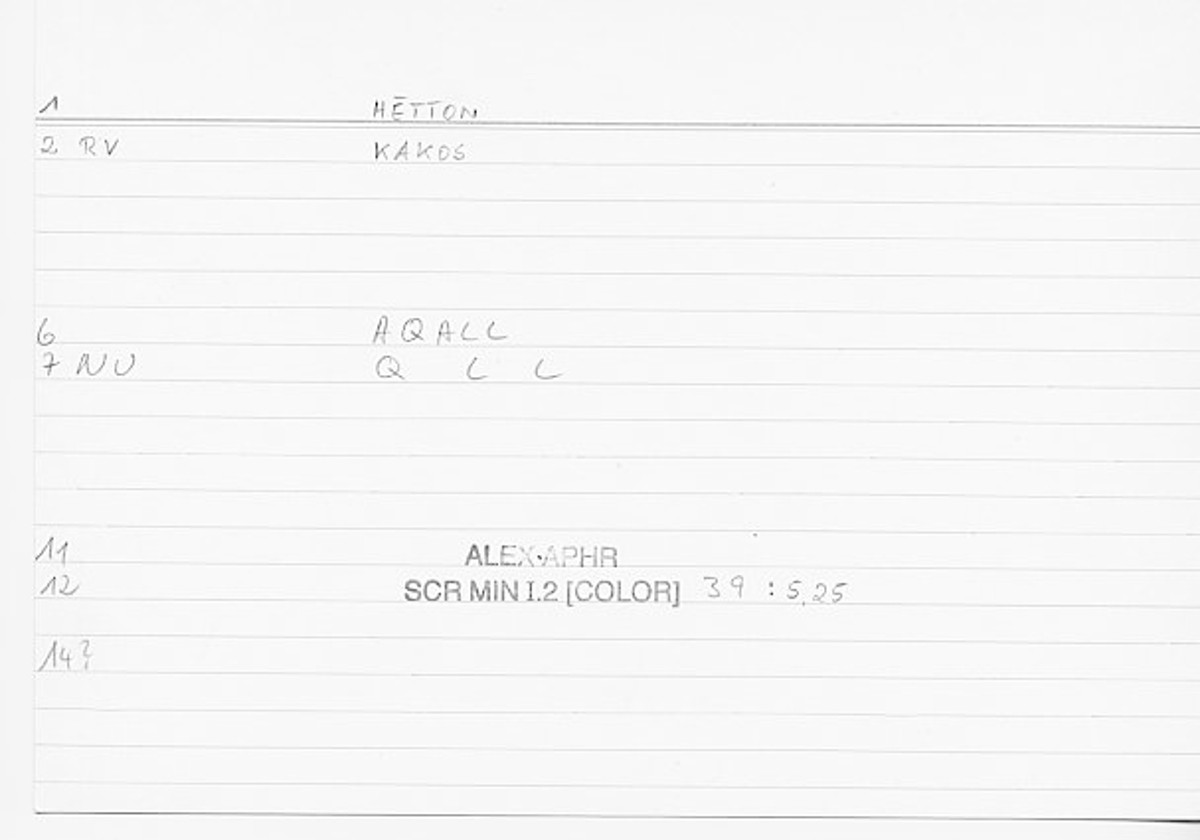 1 HĒTTON
2 RV KAKOS
6 AQALL
7 NU Q L L
11 ALEX·APHR
12 SCR MIN I.2 [COLOR] 39 : 5,25
14?